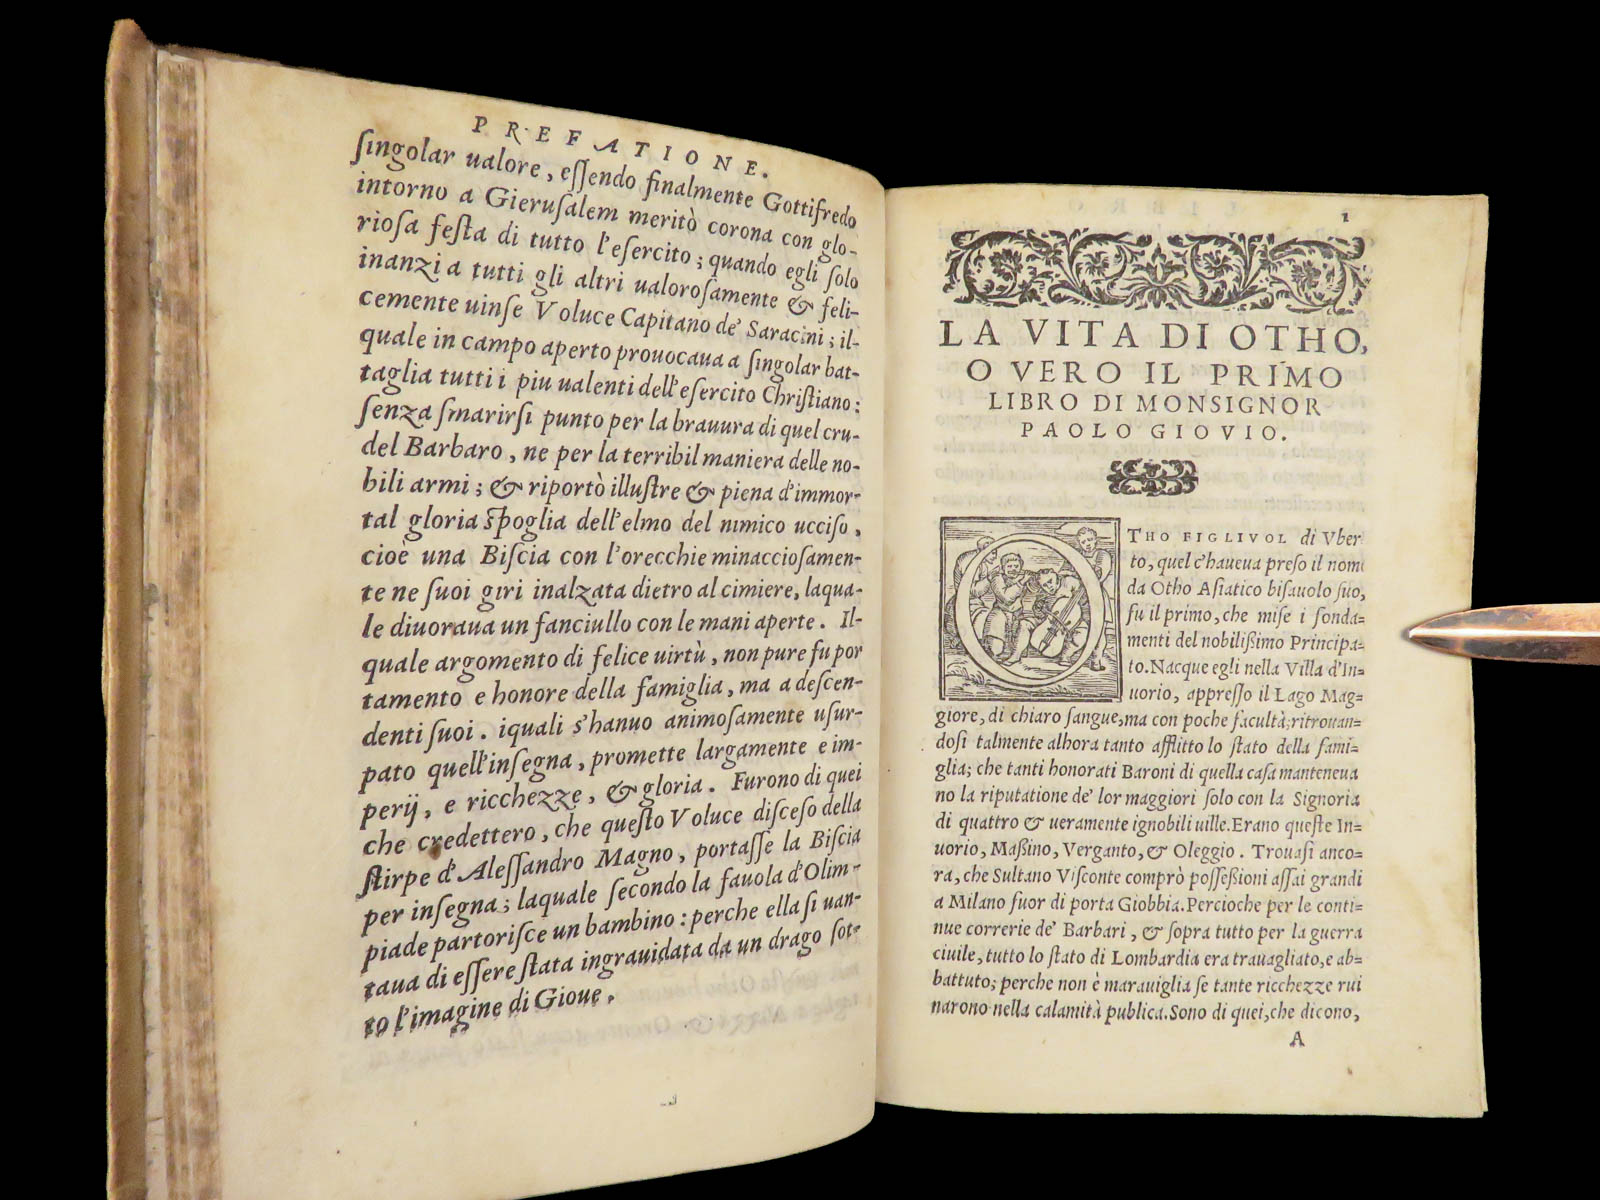 PREFATIONE.
ſingolar ualore, eſſendo finalmente Gottifredo
intorno a Gieruſalem meritò corona con glo-
rioſa feſta di tutto l'eſercito; quando egli ſolo
inanzi a tutti gli altri ualoroſamente & feli-
cemente uinſe Voluce Capitano de' Saracini; il-
quale in campo aperto prouocaua a ſingolar bat-
taglia tutti i piu ualenti dell'eſercito Chriſtiano:
ſenza ſmarirſi punto per la brauura di quel cru-
del Barbaro, ne per la terribil maniera delle no-
bili armi; & riportò illuſtre & piena d'immor-
tal gloria ſpoglia dell'elmo del nimico ucciſo,
cioè una Biſcia con l'orecchie minaccioſamen-
te ne ſuoi giri inalzata dietro al cimiere, laqua-
le diuoraua un fanciullo con le mani aperte. Il-
quale argomento di felice uirtù, non pure fu por
tamento e honore della famiglia, ma a deſcen-
denti ſuoi. iquali s'hanuo animoſamente uſur-
pato quell'inſegna, promette largamente e im-
perij, e ricchezze, & gloria. Furono di quei
che credettero, che queſto Voluce diſceſo della
ſtirpe d'Aleſſandro Magno, portaſſe la Biſcia
per inſegna; laquale ſecondo la fauola d'Olim-
piade partoriſce un bambino: perche ella ſi uan-
taua di eſſere ſtata ingrauidata da un drago ſot-
to l'imagine di Gioue.
1
LA VITA DI OTHO,
O VERO IL PRIMO
LIBRO DI MONSIGNOR
PAOLO GIOVIO.
OTHO FIGLIVOL di Vber
to, quel c'haueua preso il nome
da Otho Aſiatico biſauolo ſuo,
fu il primo, che miſe i fonda=
menti del nobilißimo Principa=
to. Nacque egli nella Villa d'In=
uorio, appreſſo il Lago Mag=
giore, di chiaro ſangue, ma con poche facultà: ritrouan=
doſi talmente alhora tanto afflitto lo ſtato della fami=
glia; che tanti honorati Baroni di quella caſa manteneua
no la riputatione de' lor maggiori ſolo con la Signoria
di quattro & ueramente ignobili uille. Erano queſte In=
uorio, Maßino, Verganto, & Oleggio. Trouaſi anco=
ra, che Sultano Viſconte comprò poſſeßioni aſſai grandi
a Milano fuor di porta Giobbia. Percioche per le conti=
nue correrie de' Barbari, & ſopra tutto per la guerra
ciuile, tutto lo ſtato di Lombardia era trauagliato, e ab=
battuto; perche non è marauiglia ſe tante ricchezze rui
narono nella calamità publica. Sono di quei, che dicono,
A